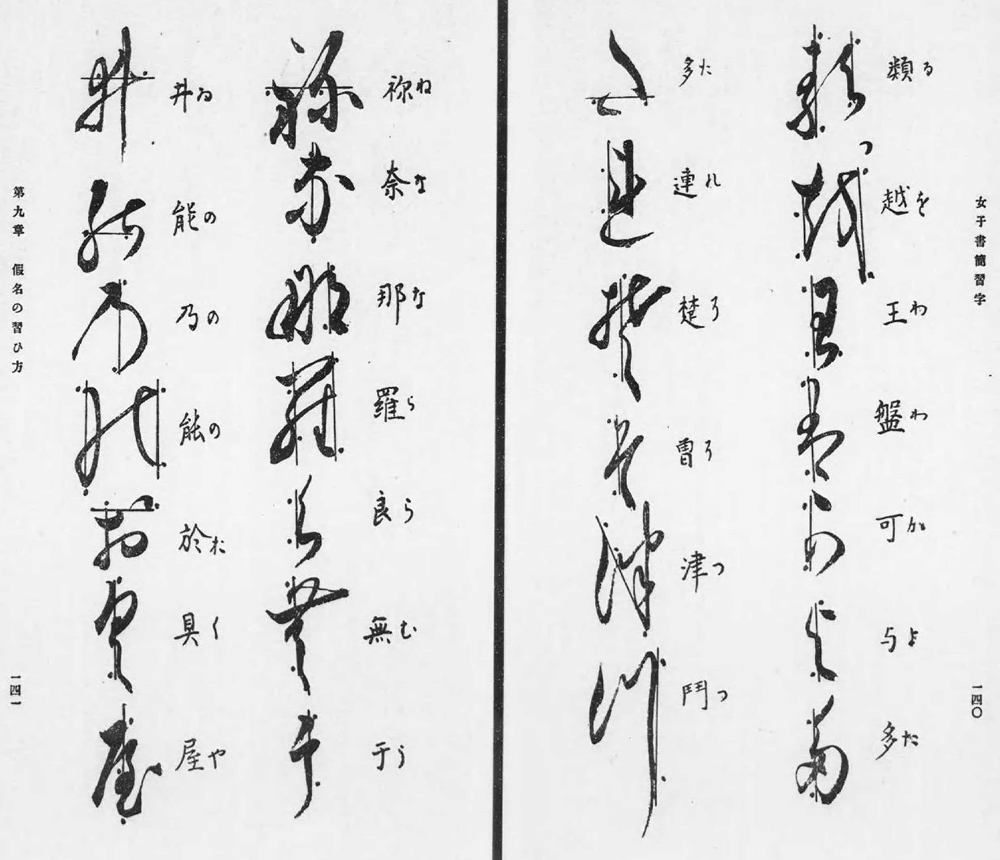 女子書簡習字
一四〇
類る
越を
王わ
盤わ
可か
与よ
多た
多た
連れ
楚そ
曽そ
津つ
鬥つ
祢ね
奈な
那な
羅ら
良ら
無む
于う
井ゐ
能の
乃の
能の
於お
具く
屋や
第九章 假名の習ひ方
一四一